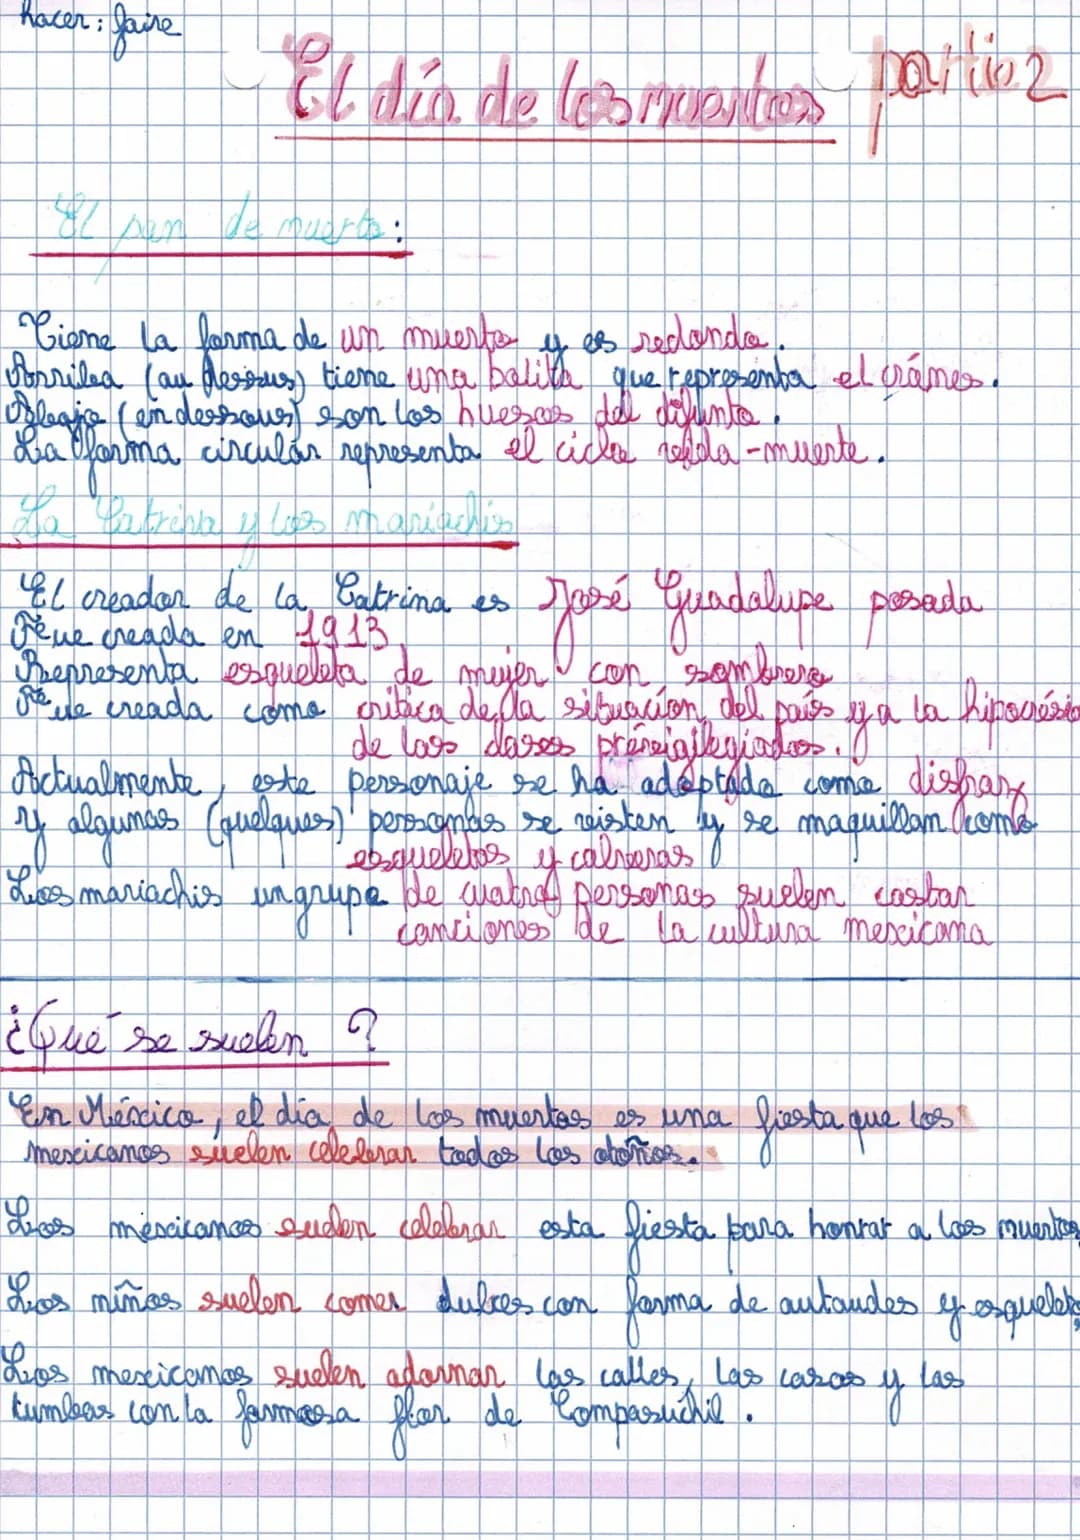 hacer : faire
El día de los muertos partie 2
El pan de muerto :
Tiene la forma de un muerto y es redondo.
Arriba (au dessus) tiene una bolita que representa el cráneo.
Abajo (en dessous) son los huesos del difunto.
La forma circular representa el ciclo vida-muerte.
La Catrina y los mariachis
El creador de la Catrina es José Guadalupe posada
Fue creada en 1913
Representa esqueleta de mujer con sombrero
Fue creada como crítica de la situación del país y a la hipocrésia
de las clases privilegiadas.
Actualmente, este personaje se ha adoptado como disfraz
y algunas (quelques) personas se visten y se maquillan como
esqueletos y calaveras
Los mariachis un grupo de cuatro personas suelen castar
canciones de la cultura mexicana
¿Qué se suelen ?
En México, el día de los muertos es una fiesta que los
mexicanos suelen celebrar todos los otoños.
Los mexicanos suelen celebrar esta fiesta para honrar a los muertos
Los niños suelen comer dulces con forma de autaudes y esqueletos
Los mexicanos suelen adornar las calles, las casas y las
tumbas con la formosa flor de Compasúchil.